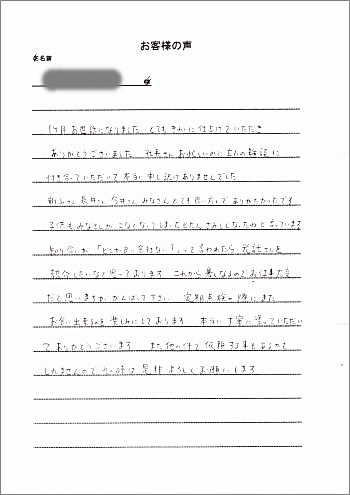 お客様の声
お名前
1ヶ月お世話になりました とてもきれいに仕上げていただき
ありがとうございました 社長さんお忙しいのに主人の雑談に
付き合っていただいて本当に申し訳ありませんでした
さん さん さん みなさんとても良い方でありがたかったです
子供もみなさんがこなくなってしまったとたん さみしくなったねと言っています
知り合いが「どっか良い会社ない?」って言われたら さんを
紹介したいなと思っております これから暑くなるのでお仕事大変
だと思いますが がんばって下さい 定期点検の際にまた
お会い出来るのを楽しみにしております 本当に丁寧に塗っていただい
てありがとうございます また他の件で依頼する事もあるかも
しれませんので その時は是非よろしくお願いします